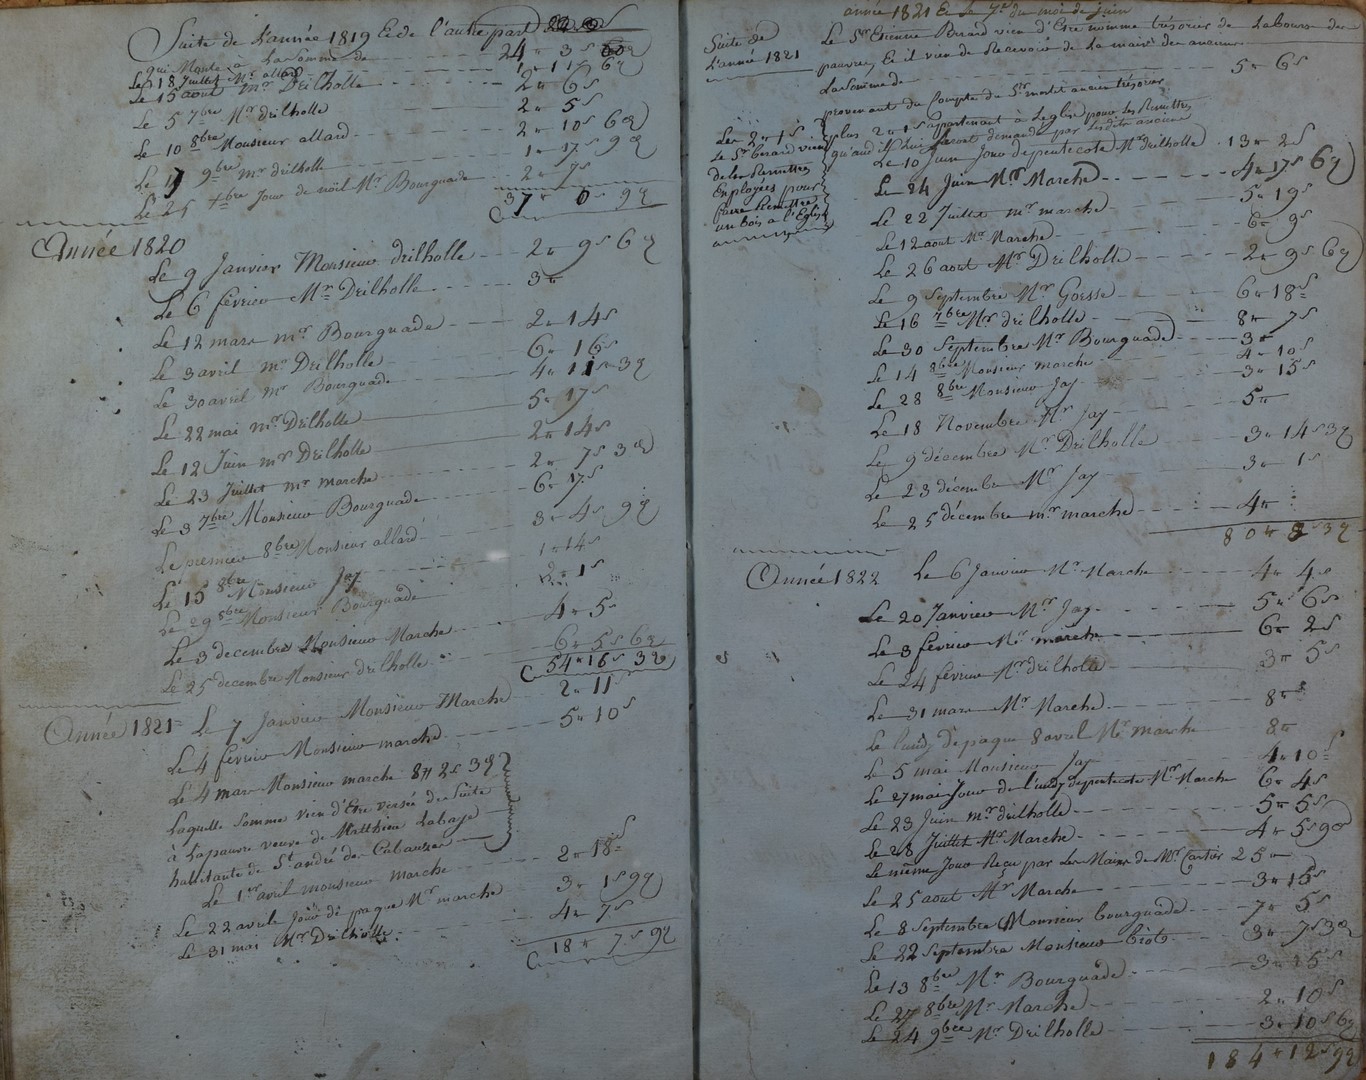 Suite de L'année 1819 Et de l'autre part
qui Monte a La Somme de 24 " 3 s
Le 18 Juillet Mr allard 1 " 11 s 6 d
Le 15 aout Mr Drilholle 2 " 6 s
Le 5 7bre Mr drilholle 2 " 5 s
Le 10 8bre Monsieur allard 2 " 10 s 6 d
Le 17 9bre mr drilholle 1 " 17 s 9 d
Le 25 xbre Jour de noël Mr Bourguade 2 " 7 s
37 " 0 " 9 d
Année 1820
Le 9 Janvier Monsieur drilholle 2 " 9 s 6 d
Le 6 fevrier Mr Drilholle 3 "
Le 12 mars mr Bourguade 2 " 14 s
Le 3 avril mr Drilholle 6 " 16 s
Le 30 avril mr Bourguade 4 " 11 s 3 d
Le 22 mai mr Drilholle 5 " 17 s
Le 12 Juin mr Drilholle 2 " 14 s
Le 23 Juillet mr marche 2 " 7 s 3 d
Le 3 7bre Monsieur Bourguade 6 " 17 s
Le premier 8bre Monsieur allard 3 " 4 s 9 d
Le 15 8bre Monsieur Jay 1 " 14 s
Le 29 8bre Monsieur Bourguade 2 " 1 s
Le 3 decembre Monsieur Marche 4 " 5
Le 25 decembre Monsieur drilholle 6 " 5 s 6 d
54 " 16 s 3 d
Année 1821 Le 7 Janvier Monsieur Marche 2 " 11 s
Le 4 fevrier Monsieur marche 5 " 10 s
Le 4 mars Monsieur marche 8 " 2 s 3 d
Laquelle Somme vien d'Etre versée de Suite
à La pauvre veuve de Matthieu Labaye
habitante de St andré de Cubauzac
Le 1er avril monsieur marche 2 " 18 s
Le 22 avril Jour de paque Mr marche 3 " 1 s 9 d
Le 31 mai Mr Drilholle 4 " 7 s
18 " 7 s 9 d
année 1821 Et Le 7e du moi de juin
Suite de L'année 1821
Le Sr Etienne Berard vien d'Etre nommé trésorier de La bource des
pauvres Et il vien de Recevoir de La main des anciens
La Somme de 5 " 6 s
provenant du Compte du Sr ancien trésorier
plus 2 " 1 s appartenant a L'eglise pour les Remettre
qu'and il Lui Seroit demandé par Les dits anciens
Les 2 " 1 s
Le Sr berard vien
de les Remettre
Employées pour
faire Remettre
un bois a l'Eglise
Le 10 Juin Jour de pentecote Mr drilholle 13 " 2 s
Le 24 Juin Mr Marche 4 " 17 s 6 d
Le 22 Juillet mr marche 5 " 19 s
Le 12 aout Mr Marche 6 " 9 s
Le 26 aout Mr Drilholle 2 " 9 s 6 d
Le 9 Septembre Mr Goesse 6 " 18 s
Le 16 7bre Mr drilholle 8 " 7 s
Le 30 Septembre Mr Bourguade 3 "
Le 14 8bre Monsieur marche 4 " 10 s
Le 28 8bre Monsieur Jay 3 " 15 s
Le 18 Novembre Mr Jay 5 "
Le 9 décembre Mr Drilholle 3 " 14 s 3 d
Le 23 décembre Mr Jay 3 " 1 s
Le 25 décembre mr marche 4 "
80 " 8 s 3 d
Année 1822 Le 6 Janvier Mr Marche 4 " 4 s
Le 20 Janvier Mr Jay 5 " 6 s
Le 3 fevrier Mr marche 6 " 2 s
Le 24 fevrier Mr drilholle 3 " 5 s
Le 31 mars Mr Marche 8 "
Le Lundy de paque 8 avril Mr marche 8 "
Le 5 mai Monsieur Jay 4 " 10 s
Le 27 mai Jour de Lundy de pentecote Mr Marche 6 " 4 s
Le 23 Juin mr drilholle 5 " 5 s
Le 28 Juillet Mr Marche 4 " 5 s 9 d
Le même Jour Reçu par Les Mains de Mr Cartier 25 "
Le 25 aout Mr Marche 3 " 15 s
Le 8 Septembre Monsieur bourguade 7 " 5 s
Le 22 Septembre Monsieur 3 " 7 s 3 d
Le 13 8bre Mr Bourguade 3 " 15 s
Le 27 8bre Mr Marche 2 " 10 s
Le 24 9bre Mr Drilholle 3 " 10 s 6 d
184 " 12 s 9 d